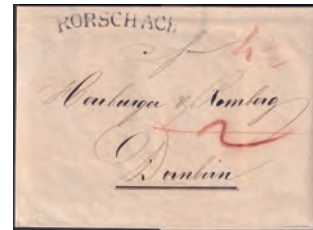 RORSCHACH
Herburger & Rhomberg
Dornbirn